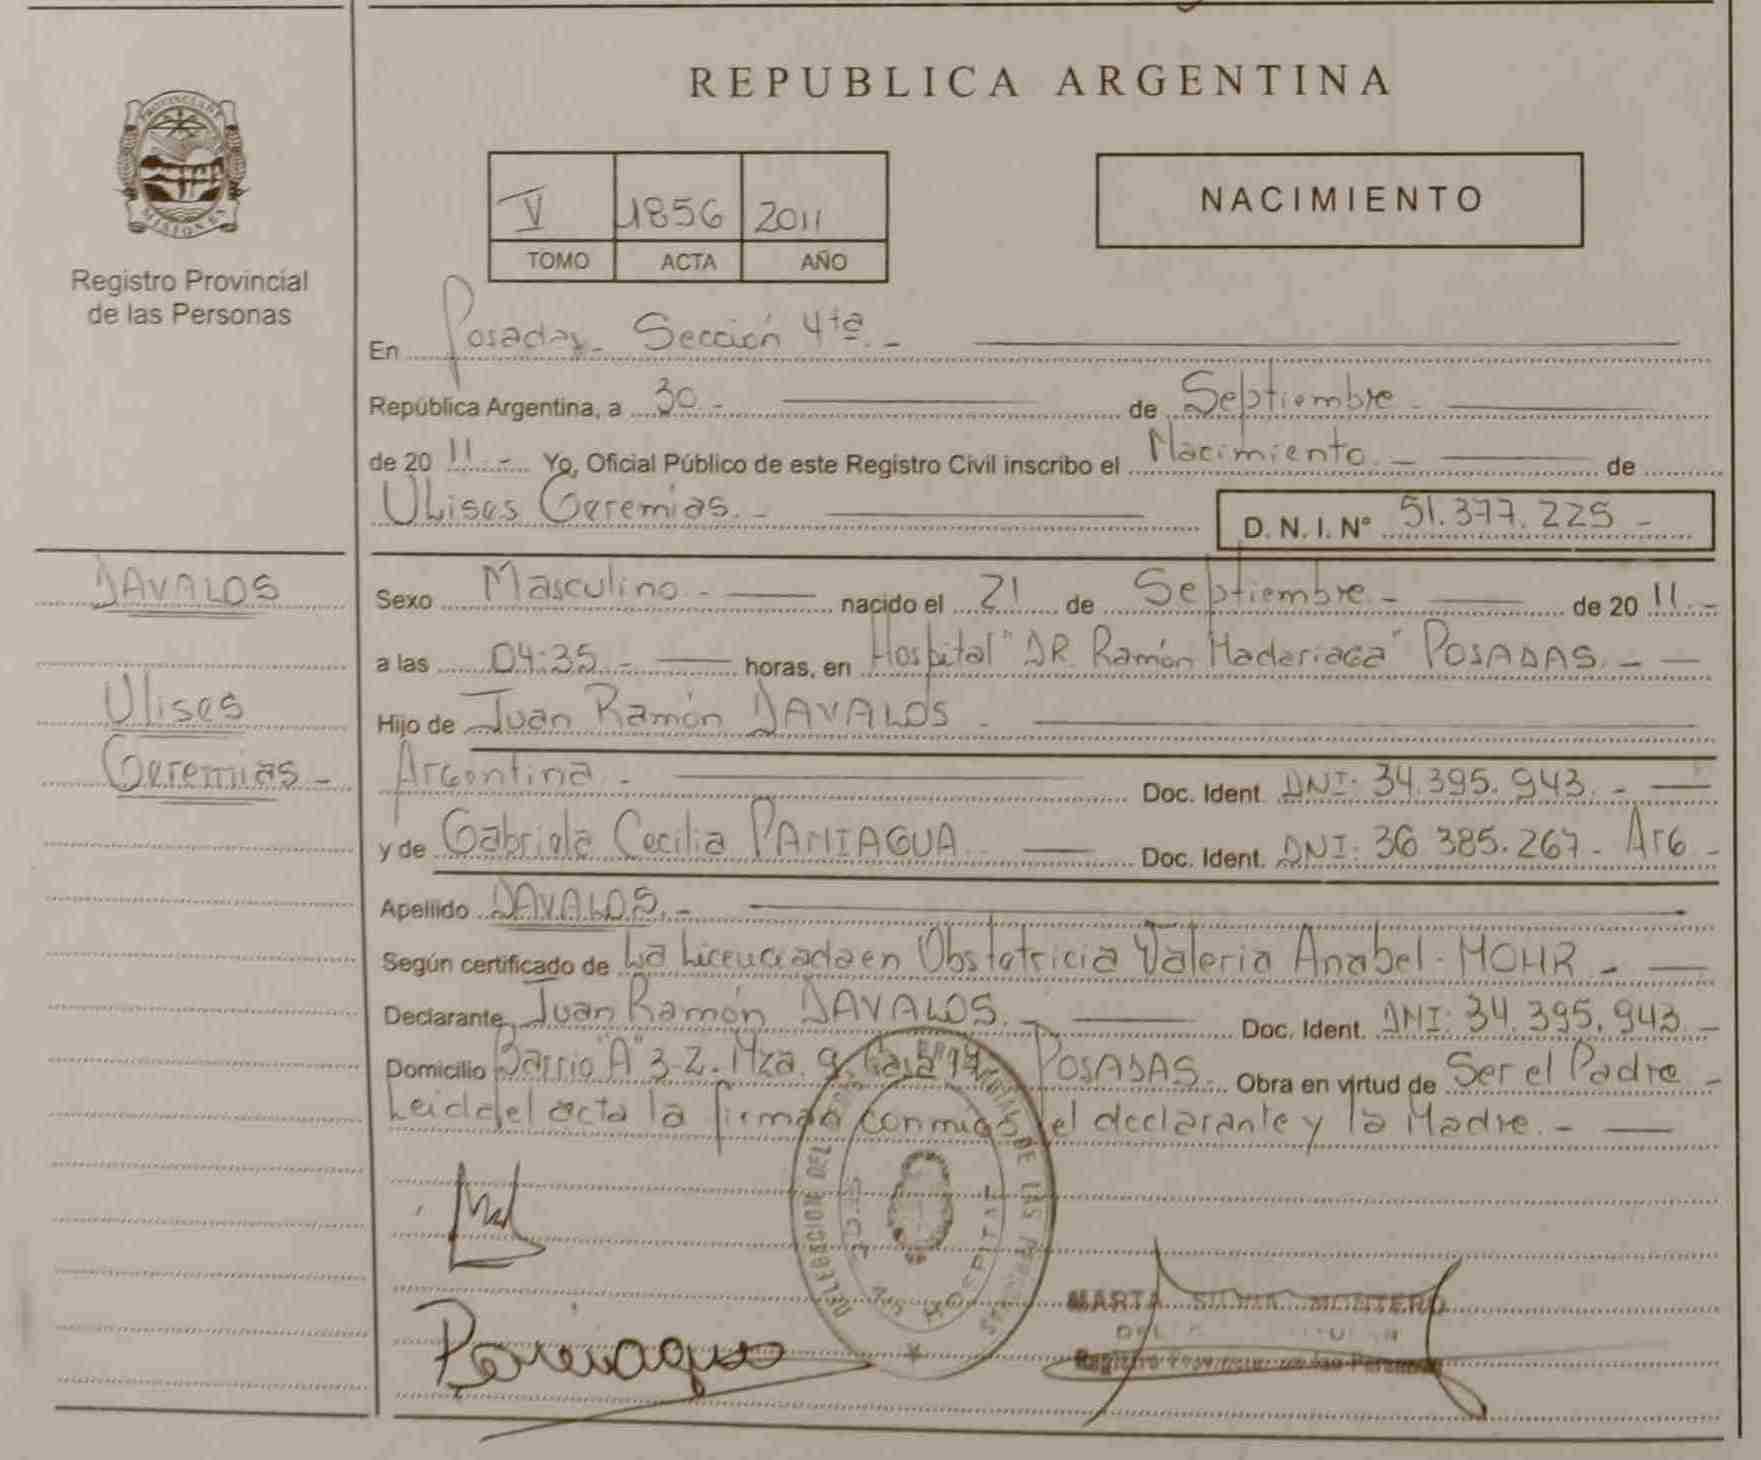 REPUBLICA ARGENTINA
PROVINCIA DE
MISIONES
Registro Provincial
de las Personas
V 1856 2011
TOMO ACTA AÑO
NACIMIENTO
En Posadas - Sección 4ta. -
República Argentina, a 30 - de Septiembre -
de 20 11 - Yo, Oficial Público de este Registro Civil inscribo el Nacimiento - de
Ulises Geremias. - D. N. I. N° 51.377.225 -
DAVALOS
Ulises
Geremias -
Sexo Masculino - nacido el 21 de Septiembre - de 20 11 -
a las 04:35 - horas, en Hospital "DR. Ramón Madariaga" POSADAS. -
Hijo de Juan Ramón DAVALOS -
Argentina - Doc. Ident. DNI: 34.395.943. -
y de Gabriela Cecilia PANIAGUA Doc. Ident. DNI: 36 385.267 - Arg -
Apellido DAVALOS. -
Según certificado de La Licenciada en Obstetricia Valeria Anabel - MOHR -
Declarante Juan Ramón DAVALOS. - Doc. Ident. DNI: 34.395.943. -
Domicilio Barrio "A" 3-2. Mza. 9. Casa POSADAS. Obra en virtud de Ser el Padre -
Leida el acta la firman conmigo el declarante y la Madre. -
DELEGACION DEL DE LAS PERSONAS
HOSPITAL
Paniagua
MARTA SILVIA MONTERO
Registro Provincial de las Personas